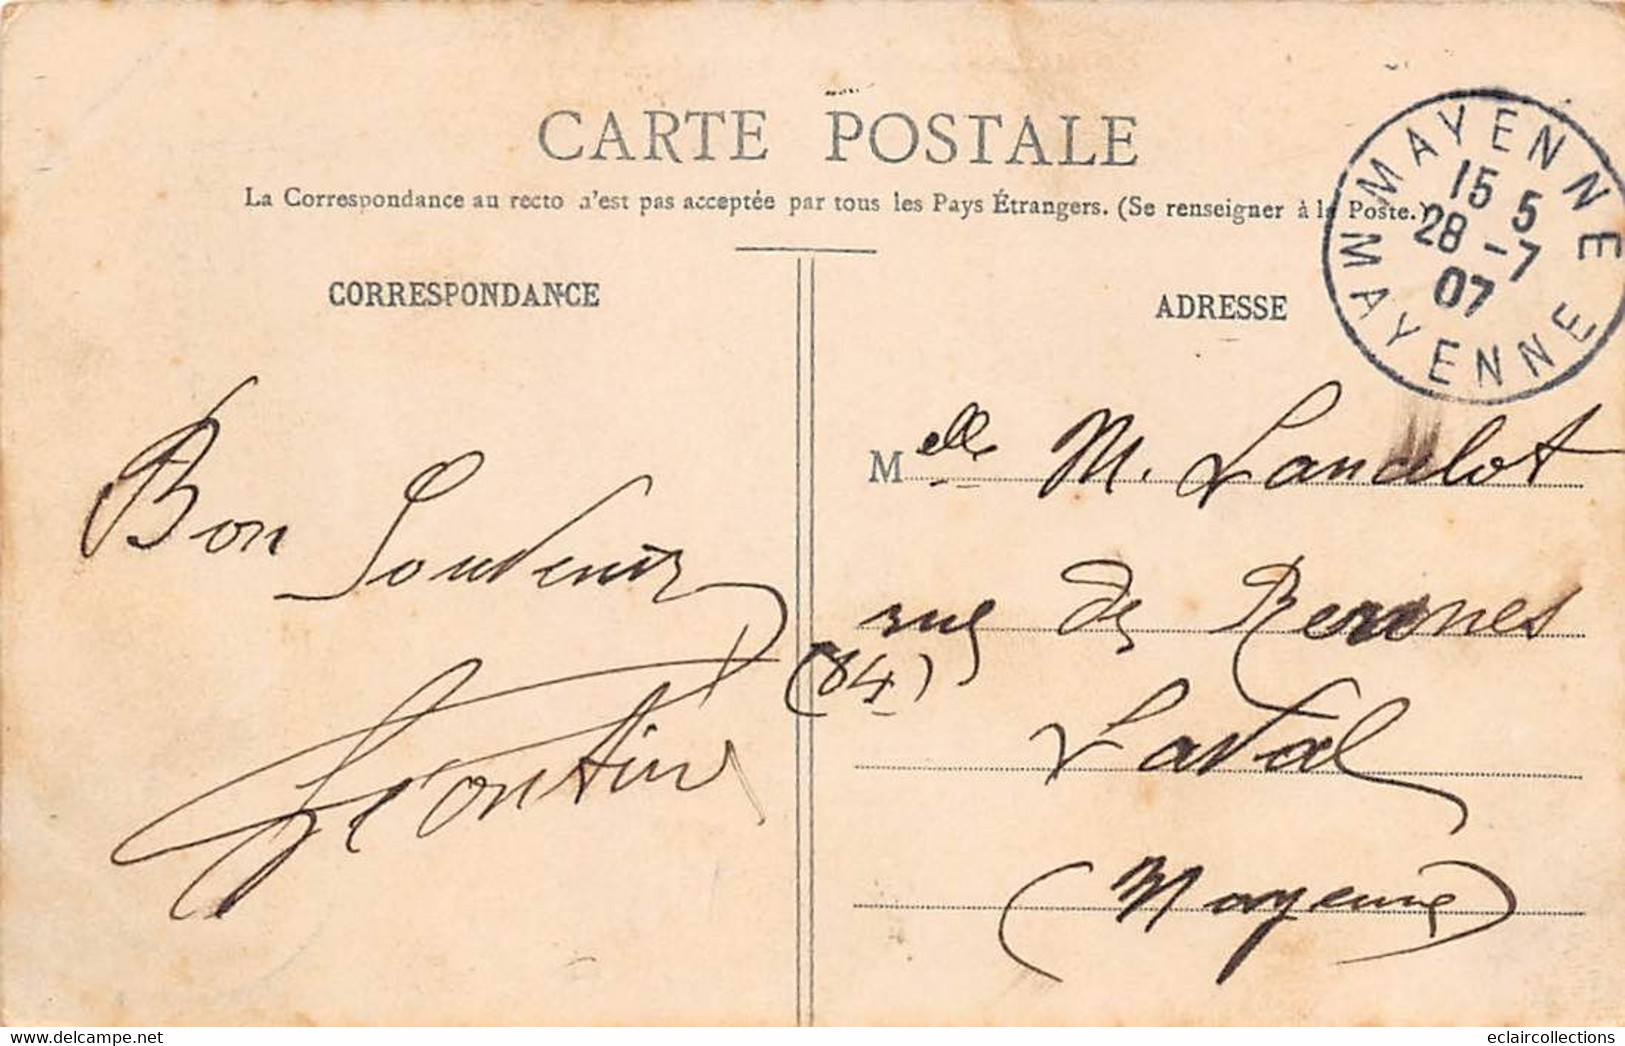 CARTE POSTALE
La Correspondance au recto n'est pas acceptée par tous les Pays Étrangers. (Se renseigner à la Poste.)
MAYENNE
15 5
28 - 7
07
MAYENNE
CORRESPONDANCE
ADRESSE
Bon Souvenir
Léontine
Melle M. Lancelot
rue de Rennes
(84)
Laval
(Mayenne)
eclaircollections